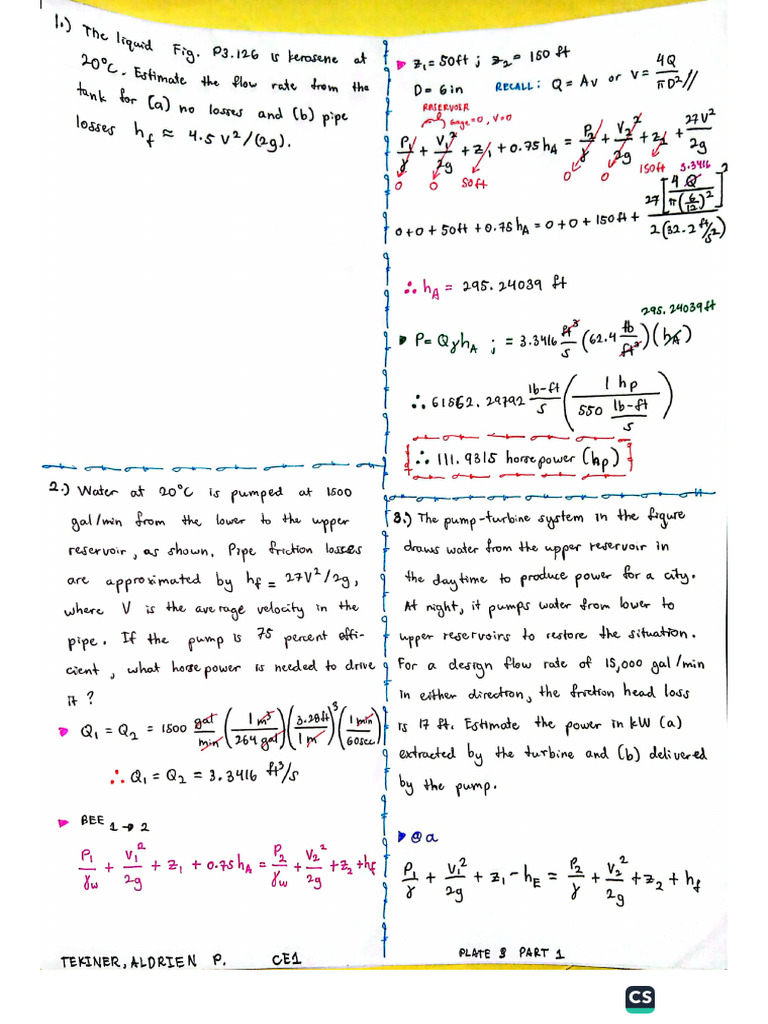 1.) The liquid Fig. P3.126 is kerosene at
20°C. Estimate the flow rate from the
tank for (a) no losses and (b) pipe
losses hf ≈ 4.5 V²/(2g).
2.) Water at 20°C is pumped at 1500
gal/min from the lower to the upper
reservoir, as shown. Pipe friction losses
are approximated by hf = 27V²/2g,
where V is the average velocity in the
pipe. If the pump is 75 percent effi-
cient, what horsepower is needed to drive
it?
Q1 = Q2 = 1500 gal/min (1 m³/264 gal)(3.28ft/1 m)³(1 min/60sec)
∴ Q1 = Q2 = 3.3416 ft³/s
BEE 1→2
P1/γw + V1²/2g + z1 + 0.75hA = P2/γw + V2²/2g + z2 + hf
z1 = 50ft ; z2 = 150 ft
D = 6in RECALL: Q = Av or V = 4Q/πD² //
RESERVOIR
Gage=0, V=0
P1/γ + V1²/2g + z1 + 0.75hA = P2/γ + V2²/2g + z2 + 27V²/2g
0 0 50ft 0 0 150ft 3.3416
0+0+50ft+0.75hA = 0+0+150ft+ 27[4Q/π(6/12)²]²/2(32.2 ft/s²)
∴ hA = 295.24039 ft
295.24039ft
P = QγhA ; = 3.3416 ft³/s (62.4 lb/ft³)(hA)
∴ 61562.29792 lb-ft/s (1 hp/550 lb-ft/s)
∴ 111.9315 horsepower (hp)
3.) The pump-turbine system in the figure
draws water from the upper reservoir in
the daytime to produce power for a city.
At night, it pumps water from lower to
upper reservoirs to restore the situation.
For a design flow rate of 15,000 gal/min
in either direction, the friction head loss
is 17 ft. Estimate the power in kW (a)
extracted by the turbine and (b) delivered
by the pump.
@a
P1/γ + V1²/2g + z1 - hE = P2/γ + V2²/2g + z2 + hf
TEKINER, ALDRIEN P. CE1
PLATE 3 PART 1
CS